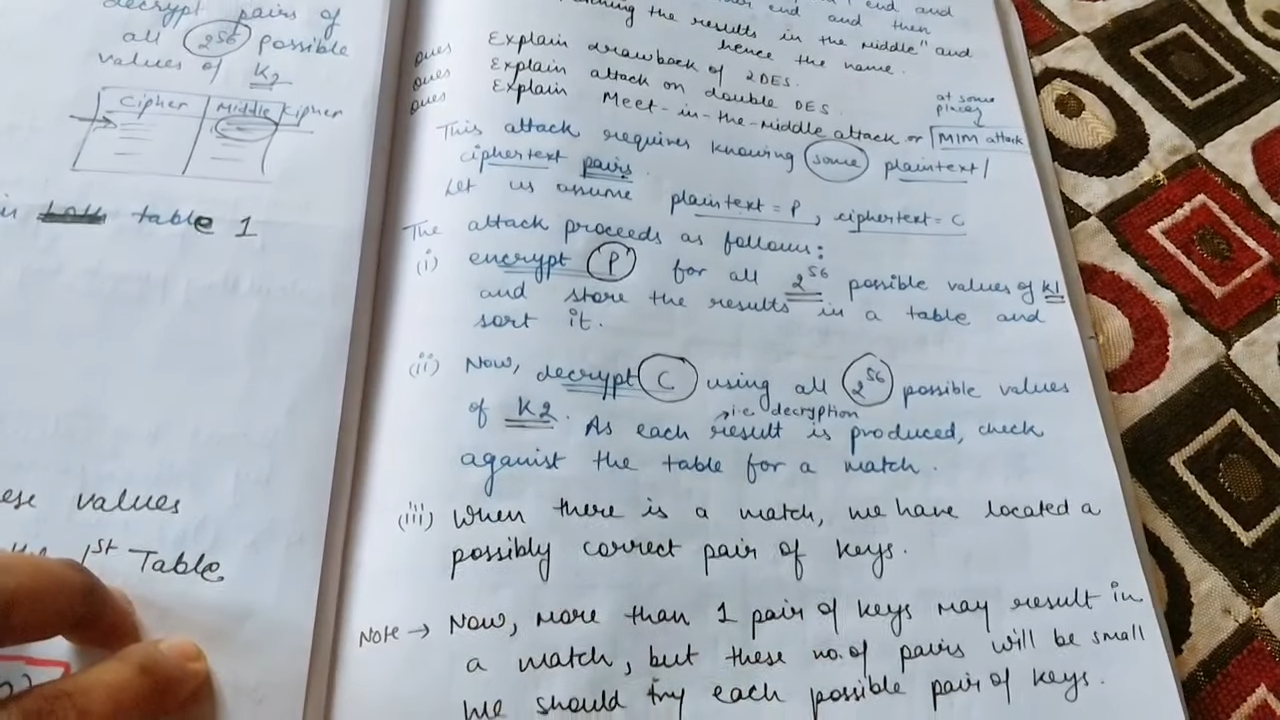 decrypt pairs of
all 2^56 possible
values of K2
Cipher | Middle Cipher
table 1
ese values
1st Table
end and
end and then
the results in the middle" and
hence the name.
Ques Explain drawback of 2DES.
Ques Explain attack on double DES.
Ques Explain Meet-in-the-Middle attack or MIM attack
at some
places
This attack requires knowing some plaintext/
ciphertext pairs.
Let us assume plaintext = P, ciphertext = C
The attack proceeds as follows:
(i) encrypt P for all 2^56 possible values of K1
and store the results in a table and
sort it.
(ii) Now, decrypt C using all 2^56 possible values
of K2. As each result is produced, check
i.e. decryption
against the table for a match.
(iii) When there is a match, we have located a
possibly correct pair of keys.
Note → Now, more than 1 pair of keys may result in
a match, but these no. of pairs will be small
We should try each possible pair of keys.